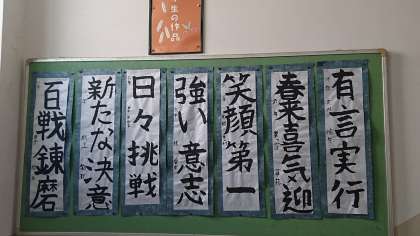 生の作品
有言実行
春来喜気迎
笑顔第一
強い意志
日々挑戦
新たな決意
百戦錬磨